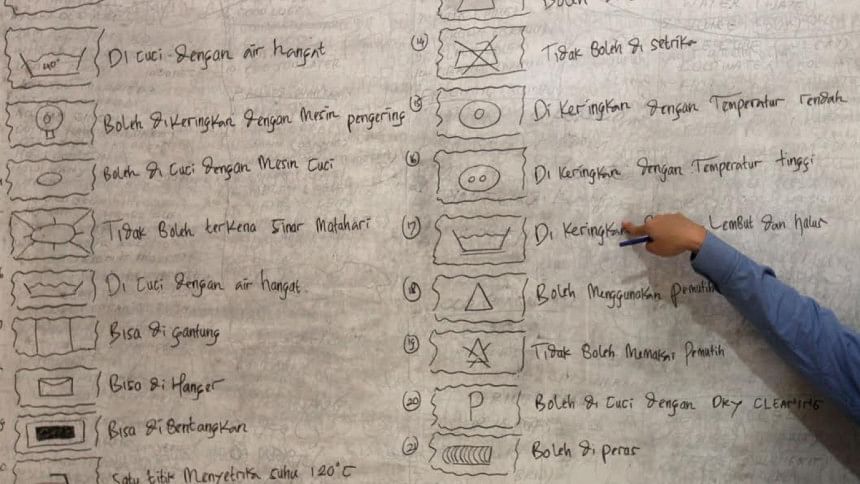 40°
Di cuci dengan air hangat
Boleh dikeringkan dengan Mesin pengering
Boleh di Cuci dengan Mesin Cuci
Tidak Boleh terkena Sinar Matahari
Di Cuci dengan air hangat
Bisa di gantung
Bisa di Hanger
Bisa di Bentangkan
Satu titik Menyetrika suhu 120°C
(14) Tidak Boleh di setrika
Di Keringkan dengan Temperatur rendah
(16) Di Keringkan dengan Temperatur tinggi
(17) Di Keringkan Lembut dan halus
(18) Boleh Menggunakan Pemutih
(19) Tidak Boleh Memakai Pemutih
(20) P Boleh di Cuci dengan DRY CLEANING
(21) Boleh di peras